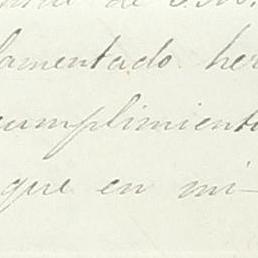 de S. M.
lamentado her
cumplimiento
que en mi-